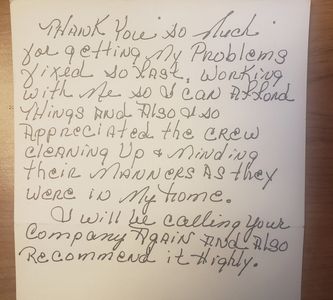 Thank You so Much
for getting My Problems
fixed so fast, working
with me so I can Afford
Things and Also I so
Appreciated the crew
cleaning Up & Minding
their Manners As they
were in My home.
I will be calling Your
Company Again and Also
Recommend it Highly.